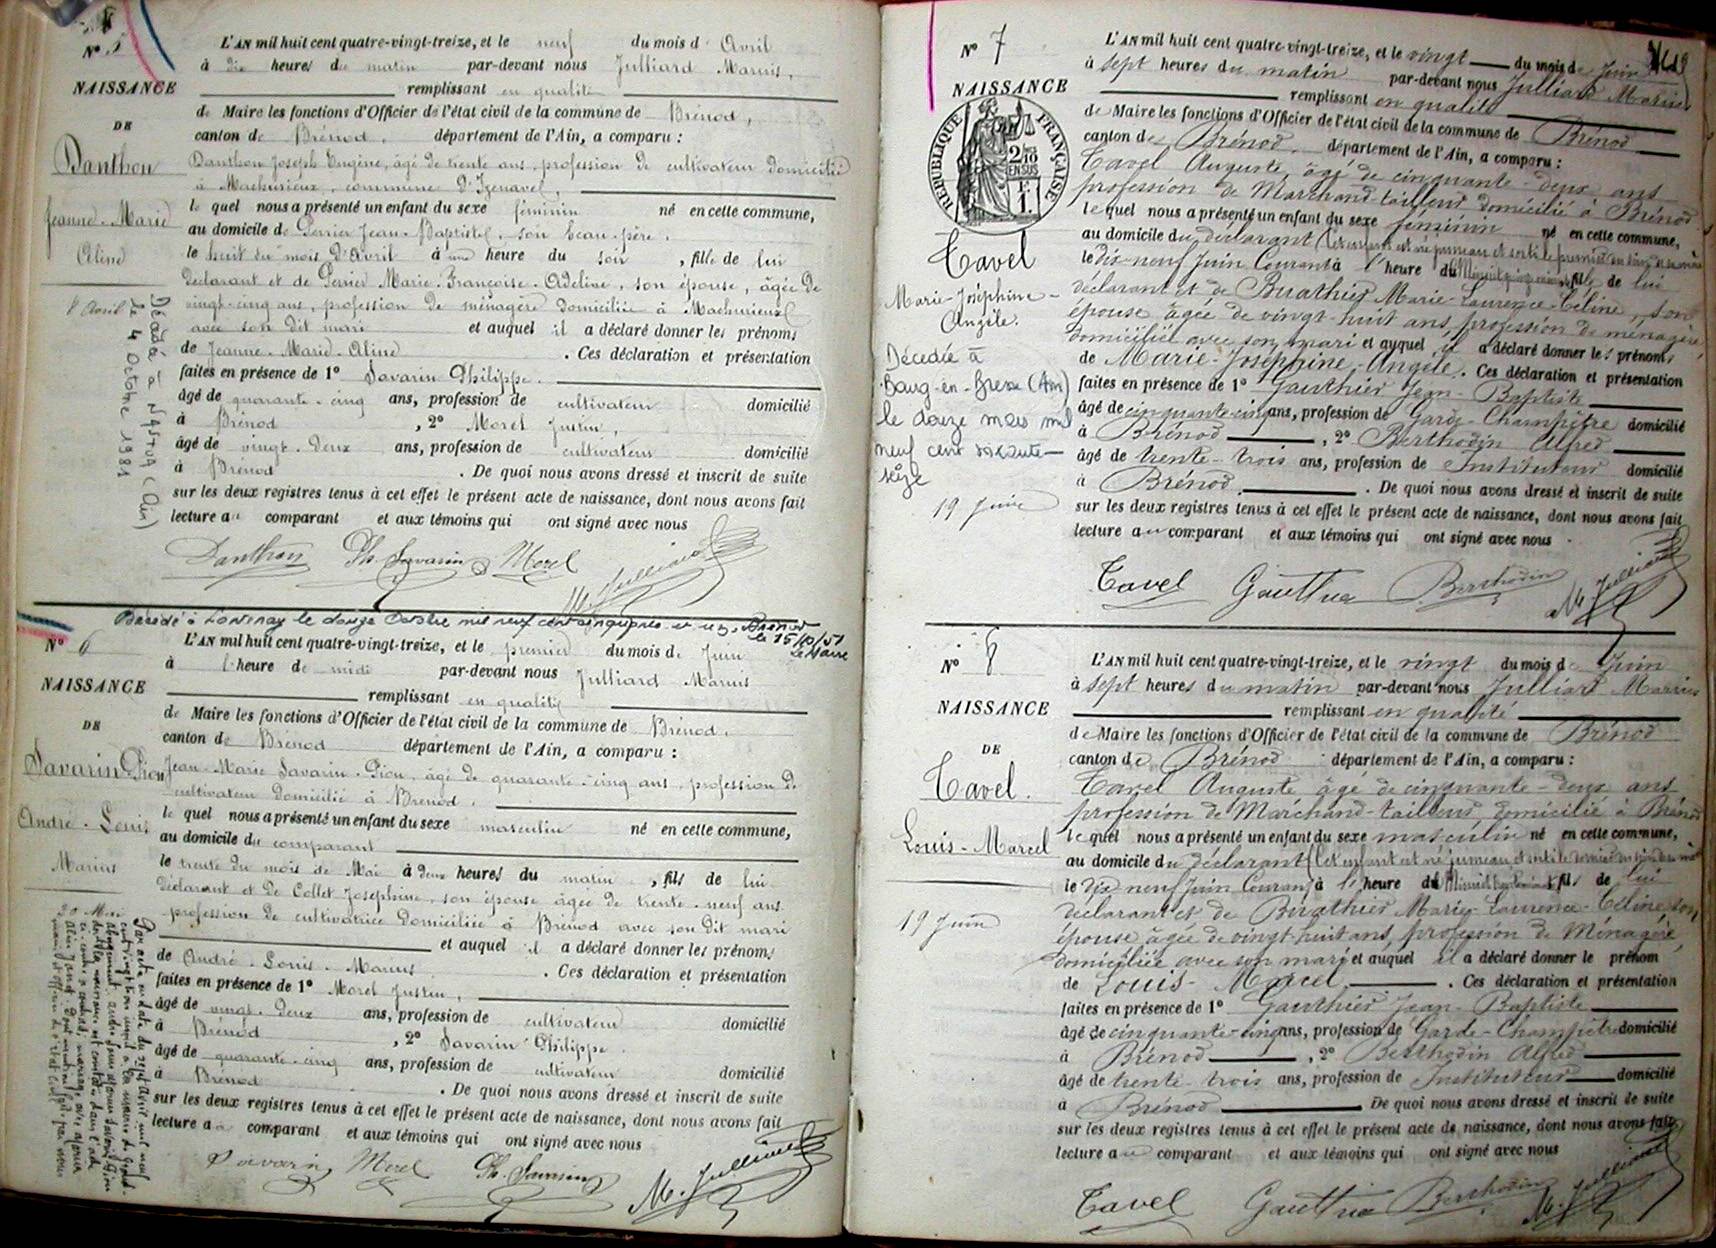 N° 5
NAISSANCE
DE
Danthon
Jeanne-Marie
Aline
8 Avril
Décédée à NANTUA (Ain)
le 4 Octobre 1981
L'AN mil huit cent quatre-vingt-treize, et le neuf du mois d' Avril
à dix heures du matin par-devant nous Julliard Marius,
remplissant en qualité
de Maire les fonctions d'Officier de l'état civil de la commune de Brénod,
canton de Brénod, département de l'Ain, a comparu :
Danthon Joseph Eugène, âgé de trente ans, profession de cultivateur domicilié
à Machurieux, commune d'Izenave,
le quel nous a présenté un enfant du sexe féminin né en cette commune,
au domicile de Perrier Jean-Baptiste, son beau-père,
le huit du mois d'Avril à une heure du soir, fille de lui
déclarant et de Perrier Marie-Françoise-Adeline, son épouse, âgée de
vingt-cinq ans, profession de ménagère domiciliée à Machurieux
avec son dit mari et auquel il a déclaré donner les prénoms
de Jeanne-Marie-Aline. Ces déclaration et présentation
faites en présence de 1° Savarin Philippe,
âgé de quarante-cinq ans, profession de cultivateur domicilié
à Brénod, 2° Morel Justin,
âgé de vingt-deux ans, profession de cultivateur domicilié
à Brénod. De quoi nous avons dressé et inscrit de suite
sur les deux registres tenus à cet effet le présent acte de naissance, dont nous avons fait
lecture au comparant et aux témoins qui ont signé avec nous
Danthon Ph. Savarin Morel
M. Julliard
Décédé à Lonnay le douze Octobre mil neuf cent cinquante et un. Brénod
le 15/10/51
Le Maire
N° 6
NAISSANCE
DE
Savarin-Pion
André-Louis
Marius
30 Mai
Par acte en date du sept avril mil neuf
L'AN mil huit cent quatre-vingt-treize, et le premier du mois de Juin
à l'heure de midi par-devant nous Julliard Marius
remplissant en qualité
de Maire les fonctions d'Officier de l'état civil de la commune de Brénod,
canton de Brénod département de l'Ain, a comparu :
Jean-Marie Savarin-Pion, âgé de quarante-cinq ans, profession de
cultivateur domicilié à Brénod,
le quel nous a présenté un enfant du sexe masculin né en cette commune,
au domicile du comparant
le trente du mois de Mai à deux heures du matin, fils de lui
déclarant et de Collet Joséphine, son épouse âgée de trente-neuf ans
profession de cultivatrice domiciliée à Brénod avec son dit mari
et auquel il a déclaré donner les prénoms
de André-Louis-Marius. Ces déclaration et présentation
faites en présence de 1° Morel Justin,
âgé de vingt-deux ans, profession de cultivateur domicilié
à Brénod, 2° Savarin Philippe
âgé de quarante-cinq ans, profession de cultivateur domicilié
à Brénod. De quoi nous avons dressé et inscrit de suite
sur les deux registres tenus à cet effet le présent acte de naissance, dont nous avons fait
lecture au comparant et aux témoins qui ont signé avec nous
Savarin Morel Ph. Savarin M. Julliard
N° 7
NAISSANCE
RÉPUBLIQUE FRANÇAISE
2/10 EN SUS
1F
Tavel
Marie-Joséphine-
Angèle.
Décédée à
Bourg-en-Bresse (Ain)
le douze mars mil
neuf cent soixante-
seize
19 Juin
L'AN mil huit cent quatre-vingt-treize, et le vingt du mois de Juin
à sept heures du matin par-devant nous Julliard Marius
remplissant en qualité
de Maire les fonctions d'Officier de l'état civil de la commune de Brénod
canton de Brénod, département de l'Ain, a comparu :
Tavel Auguste, âgé de cinquante-deux ans
profession de Marchand-tailleur domicilié à Brénod
le quel nous a présenté un enfant du sexe féminin né en cette commune,
au domicile du déclarant (cet enfant est né jumeau et sorti le premier du sein de sa mère
le dix-neuf Juin Courant à l'heure de Minuit fille de lui
déclarant et de Buathier Marie-Laurence-Céline, son
épouse âgée de vingt-huit ans, profession de ménagère
domiciliée avec son mari et auquel il a déclaré donner les prénoms
de Marie-Joséphine-Angèle. Ces déclaration et présentation
faites en présence de 1° Gauthier Jean-Baptiste
âgé de cinquante-cinq ans, profession de Garde-Champêtre domicilié
à Brénod, 2° Berthodin Alfred
âgé de trente-trois ans, profession de Instituteur domicilié
à Brénod. De quoi nous avons dressé et inscrit de suite
sur les deux registres tenus à cet effet le présent acte de naissance, dont nous avons fait
lecture au comparant et aux témoins qui ont signé avec nous
Tavel Gauthier Berthodin M. Julliard
N° 8
NAISSANCE
DE
Tavel.
Louis-Marcel
19 Juin
L'AN mil huit cent quatre-vingt-treize, et le vingt du mois de Juin
à sept heures du matin par-devant nous Julliard Marius
remplissant en qualité
de Maire les fonctions d'Officier de l'état civil de la commune de Brénod
canton de Brénod département de l'Ain, a comparu :
Tavel Auguste âgé de cinquante-deux ans
profession de Marchand-tailleur, domicilié à Brénod
le quel nous a présenté un enfant du sexe masculin né en cette commune,
au domicile du déclarant (Cet enfant est né jumeau et sorti le dernier du sein de sa mère
le dix-neuf Juin Courant à l'heure de Minuit fils de lui
déclarant et de Buathier Marie-Laurence-Céline, son
épouse âgée de vingt huit ans, profession de Ménagère,
domiciliée avec son mari et auquel il a déclaré donner le prénom
de Louis-Marcel. Ces déclaration et présentation
faites en présence de 1° Gauthier Jean-Baptiste
âgé de cinquante-cinq ans, profession de Garde-Champêtre domicilié
à Brénod, 2° Berthodin Alfred
âgé de trente-trois ans, profession de Instituteur domicilié
à Brénod De quoi nous avons dressé et inscrit de suite
sur les deux registres tenus à cet effet le présent acte de naissance, dont nous avons fait
lecture au comparant et aux témoins qui ont signé avec nous
Tavel Gauthier Berthodin M. Julliard